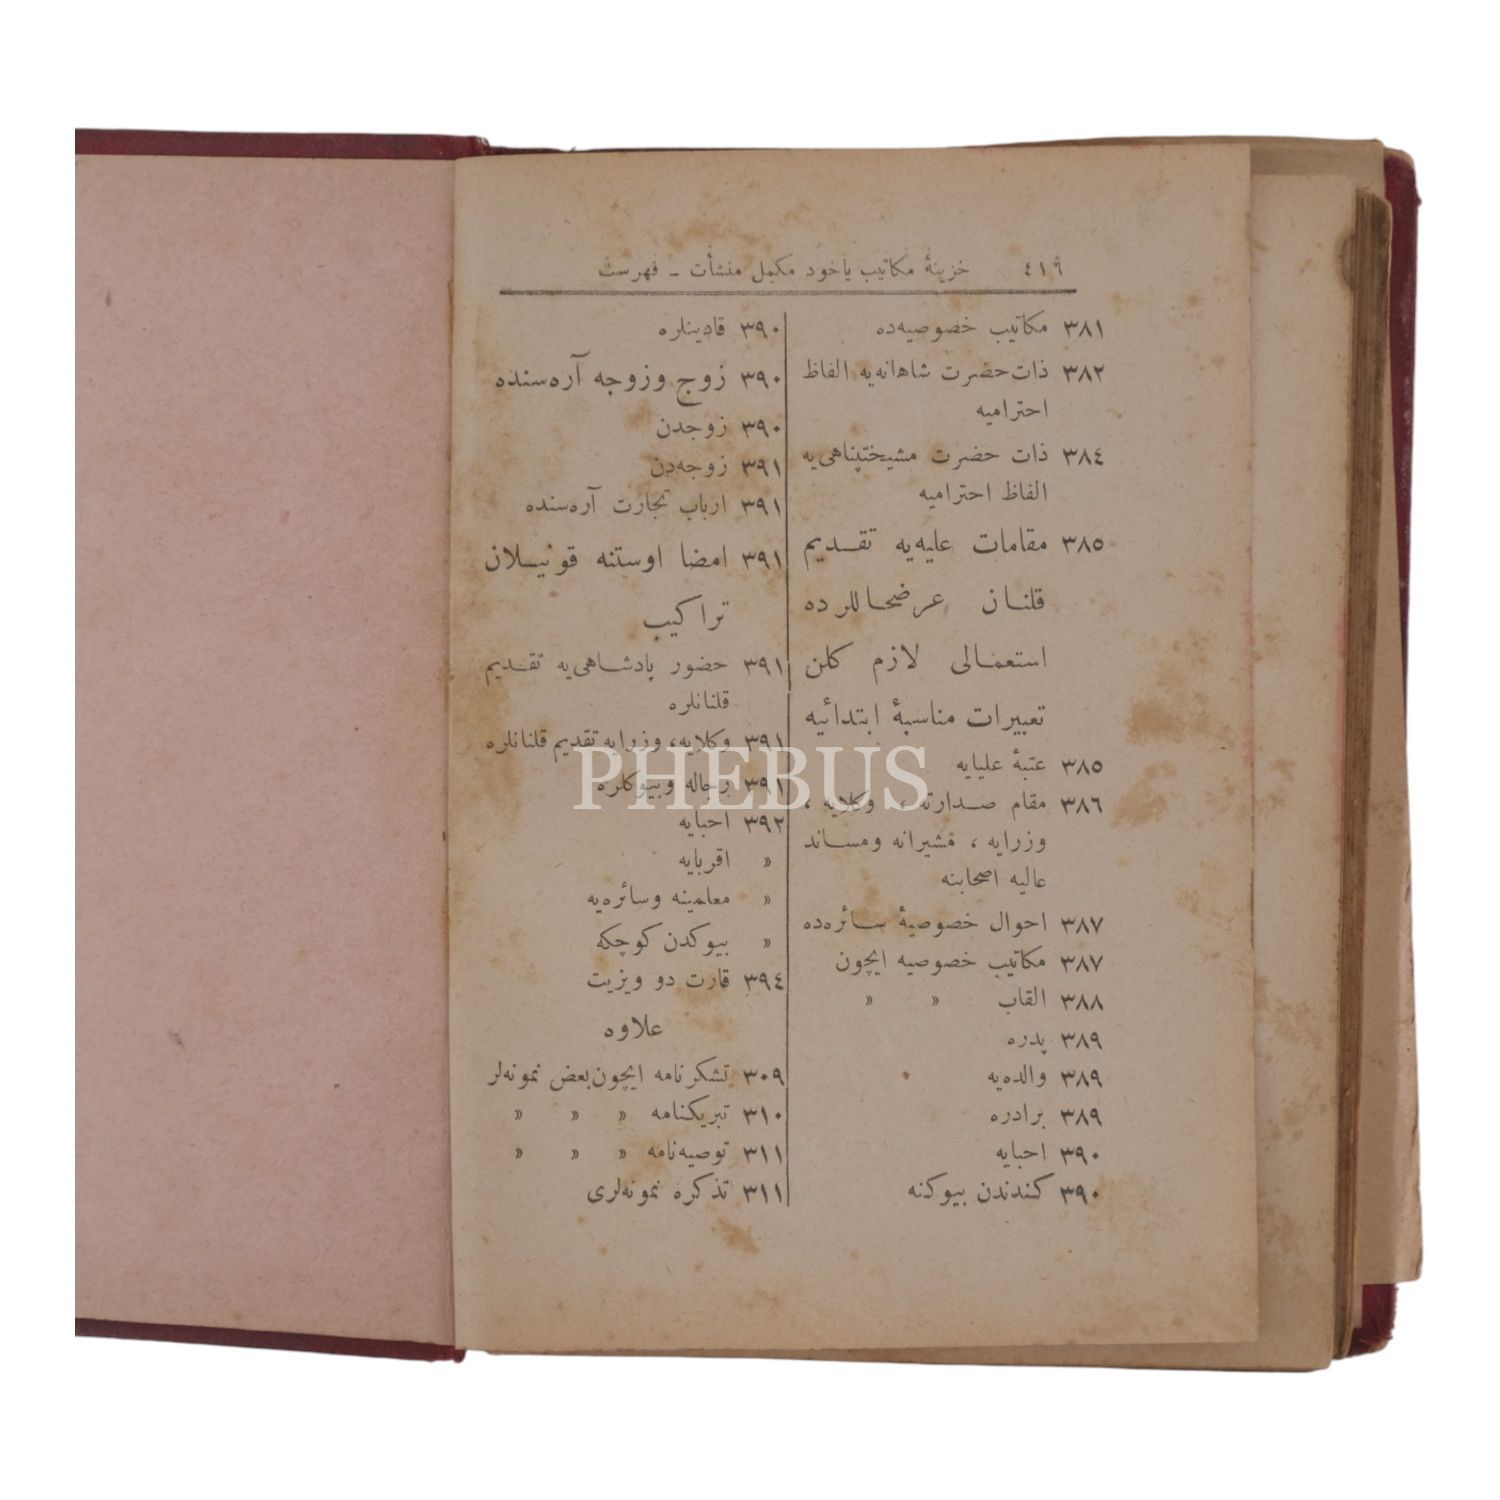 ٤١٦ خزینهٔ مکاتیب یاخود مکمل منشأت - فهرست
٣٨١ مکاتیب خصوصیه‌ده
٣٨٢ ذات حضرت شاهانه‌یه الفاظ
احترامیه
٣٨٤ ذات حضرت مشیختپناهی‌یه
الفاظ احترامیه
٣٨٥ مقامات علیه‌یه تقدیم
قلنان عرضحاللرده
استعمالی لازم کلن
تعبیرات مناسبهٔ ابتدائیه
٣٨٥ عتبهٔ علیایه
٣٨٦ مقام صدارته ، وکلایه ،
وزرایه ، مشیرانه ومساند
عالیه اصحابنه
٣٨٧ احوال خصوصیهٔ سائره‌ده
٣٨٧ مکاتیب خصوصیه ایچون
٣٨٨ القاب » »
٣٨٩ پدره
٣٨٩ والده‌یه
٣٨٩ برادره
٣٩٠ احبایه
٣٩٠ کندندن بیوکنه
٣٩٠ قادینلره
٣٩٠ زوج وزوجه آره‌سنده
٣٩٠ زوجدن
٣٩١ زوجه‌دن
٣٩١ ارباب تجارت آره‌سنده
٣٩١ امضا اوستنه قونیلان
تراکیب
٣٩١ حضور پادشاهی‌یه تقدیم
قلنانلره
٣٩١ وکلایه، وزرایه تقدیم قلنانلره
٣٩١ رجاله وبیوکلره
٣٩٢ احبایه
» اقربایه
» معلمینه وسائره‌یه
» بیوکدن کوچکه
٣٩٤ قارت دو ویزیت
علاوه
٣٠٩ تشکرنامه ایچون بعض نمونه‌لر
٣١٠ تبریکنامه » » »
٣١١ توصیه‌نامه » » »
٣١١ تذکره نمونه‌لری
PHEBUS